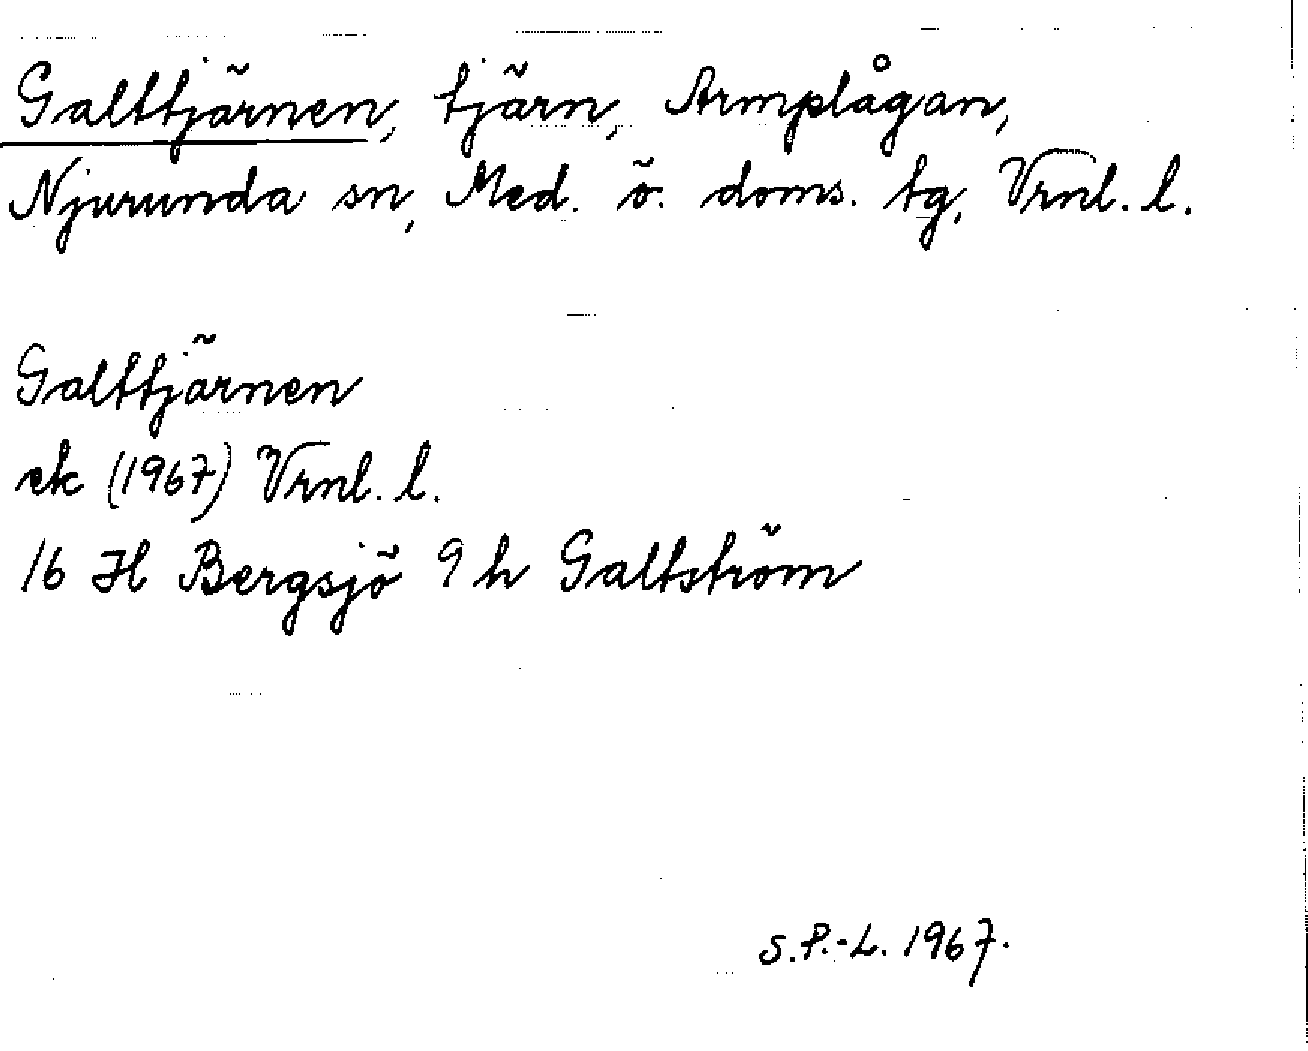 Galttjärnen, tjärn, Armplågan,
Njurunda sn, Med. ö. doms. tg, Vrnl. l.
Galttjärnen
ek (1967) Vrnl. l.
16 H Bergsjö 9 h Galtström
S.P.-L. 1967.